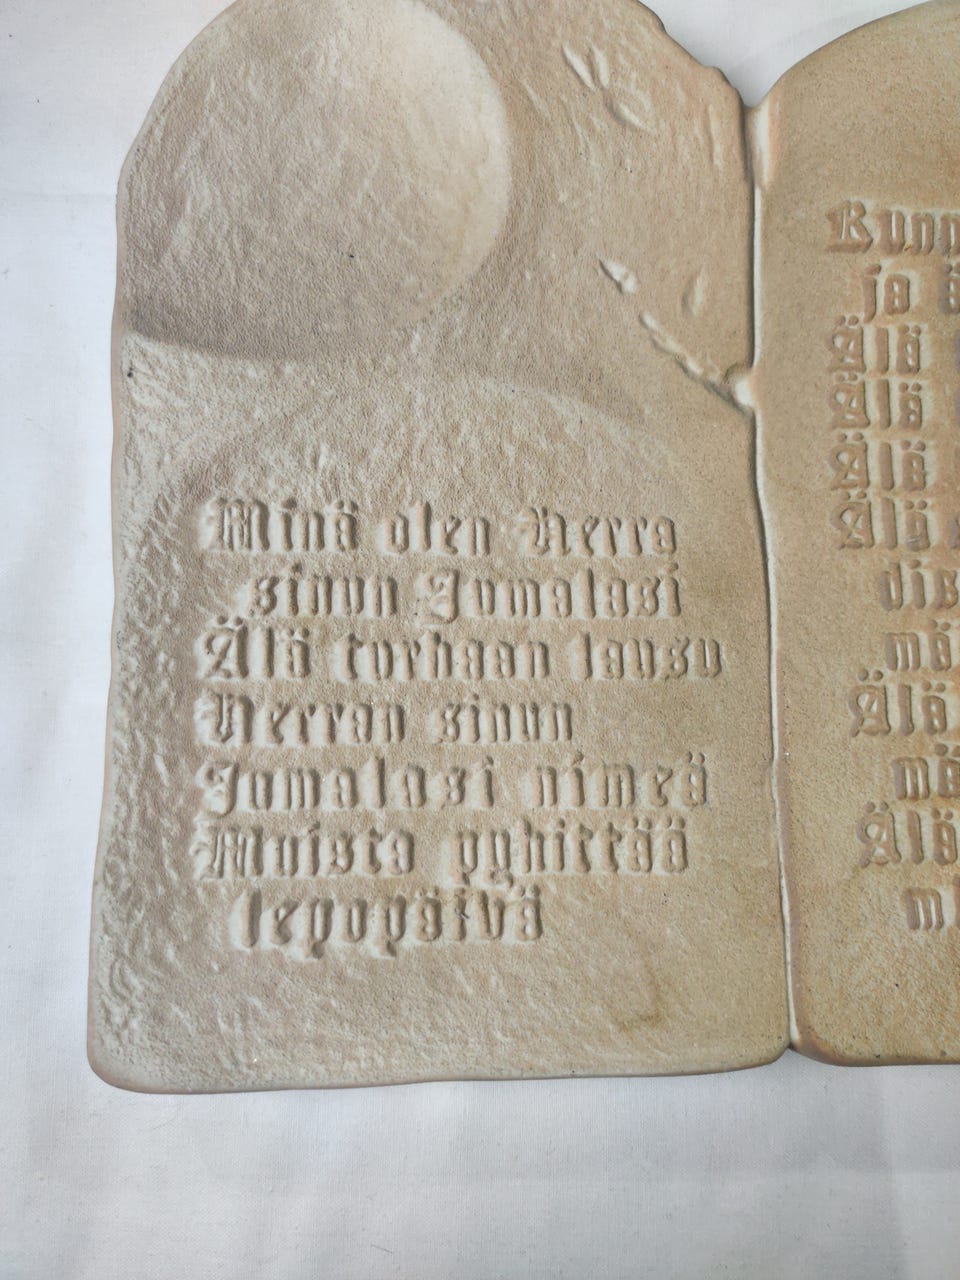 Minä olen Herra
sinun Jumalasi
Älä turhaan lausu
Herran sinun
Jumalasi nimeä
Muista pyhittää
lepopäivä
Kunn
ja ä
Älä
Älä
Älä
Älä
dis
mä
Älä
mä
Älä
m